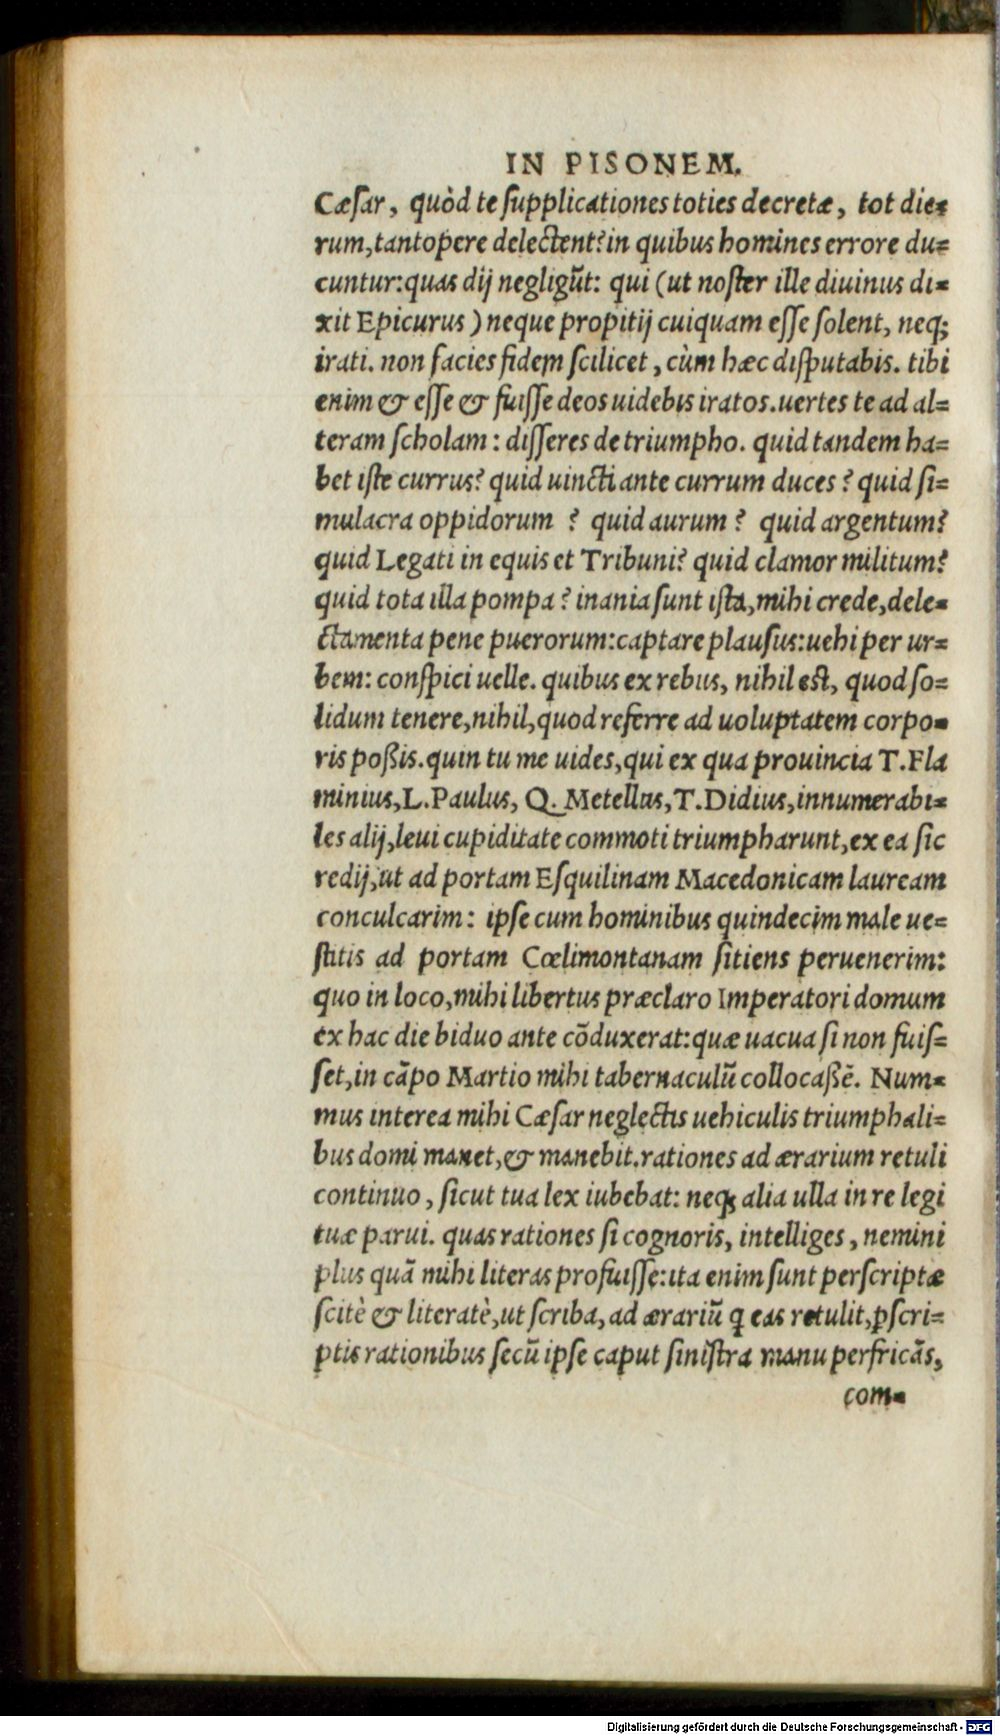 IN PISONEM.
Cæſar, quòd te ſupplicationes toties decretæ, tot die-
rum, tantopere delectent? in quibus homines errore du-
cuntur: quas dij negligũt: qui (ut noſter ille diuinus di-
xit Epicurus) neque propitij cuiquam eſſe ſolent, neq;
irati. non facies fidem ſcilicet, cùm hæc diſputabis. tibi
enim & eſſe & fuiſſe deos uidebis iratos. uertes te ad al-
teram ſcholam: diſſeres de triumpho. quid tandem ha-
bet iſte currus? quid uincti ante currum duces? quid ſi-
mulacra oppidorum? quid aurum? quid argentum?
quid Legati in equis et Tribuni? quid clamor militum?
quid tota illa pompa? inania ſunt iſta, mihi crede, dele-
ctamenta pene puerorum: captare plauſus: uehi per ur-
bem: conſpici uelle. quibus ex rebus, nihil eſt, quod ſo-
lidum tenere, nihil, quod referre ad uoluptatem corpo-
ris poßis. quin tu me uides, qui ex qua prouincia T. Fla
minius, L. Paulus, Q. Metellus, T. Didius, innumerabi-
les alij, leui cupiditate commoti triumpharunt, ex ea ſic
redij, ut ad portam Eſquilinam Macedonicam lauream
conculcarim: ipſe cum hominibus quindecim male ue-
ſtitis ad portam Cœlimontanam ſitiens peruenerim:
quo in loco, mihi libertus præclaro Imperatori domum
ex hac die biduo ante cõduxerat: quæ uacua ſi non fuiſ-
ſet, in cãpo Martio mihi tabernaculũ collocaßẽ. Num-
mus interea mihi Cæſar neglectis uehiculis triumphali-
bus domi manet, & manebit. rationes ad ærarium retuli
continuo, ſicut tua lex iubebat: neq; alia ulla in re legi
tuæ parui. quas rationes ſi cognoris, intelliges, nemini
plus quã mihi literas profuiſſe: ita enim ſunt perſcriptæ
ſcitè & literatè, ut ſcriba, ad ærariũ q eas retulit, ꝑſcri-
ptis rationibus ſecũ ipſe caput ſiniſtra manu perfricãs,
com-
Digitalisierung gefördert durch die Deutsche Forschungsgemeinschaft - DFG